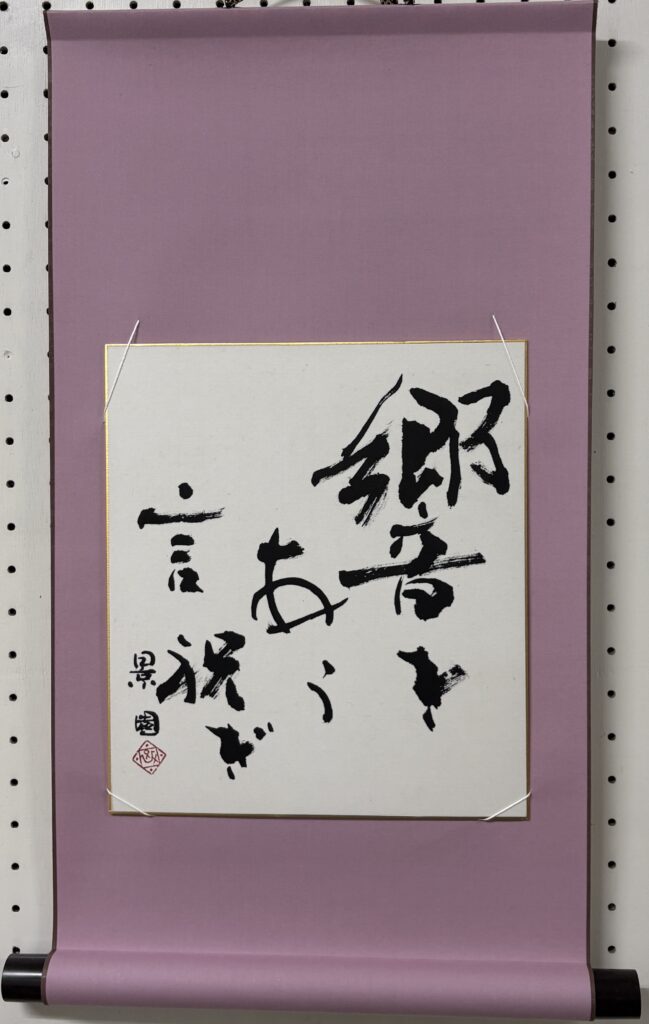 響き
あう
言祝ぎ
景園